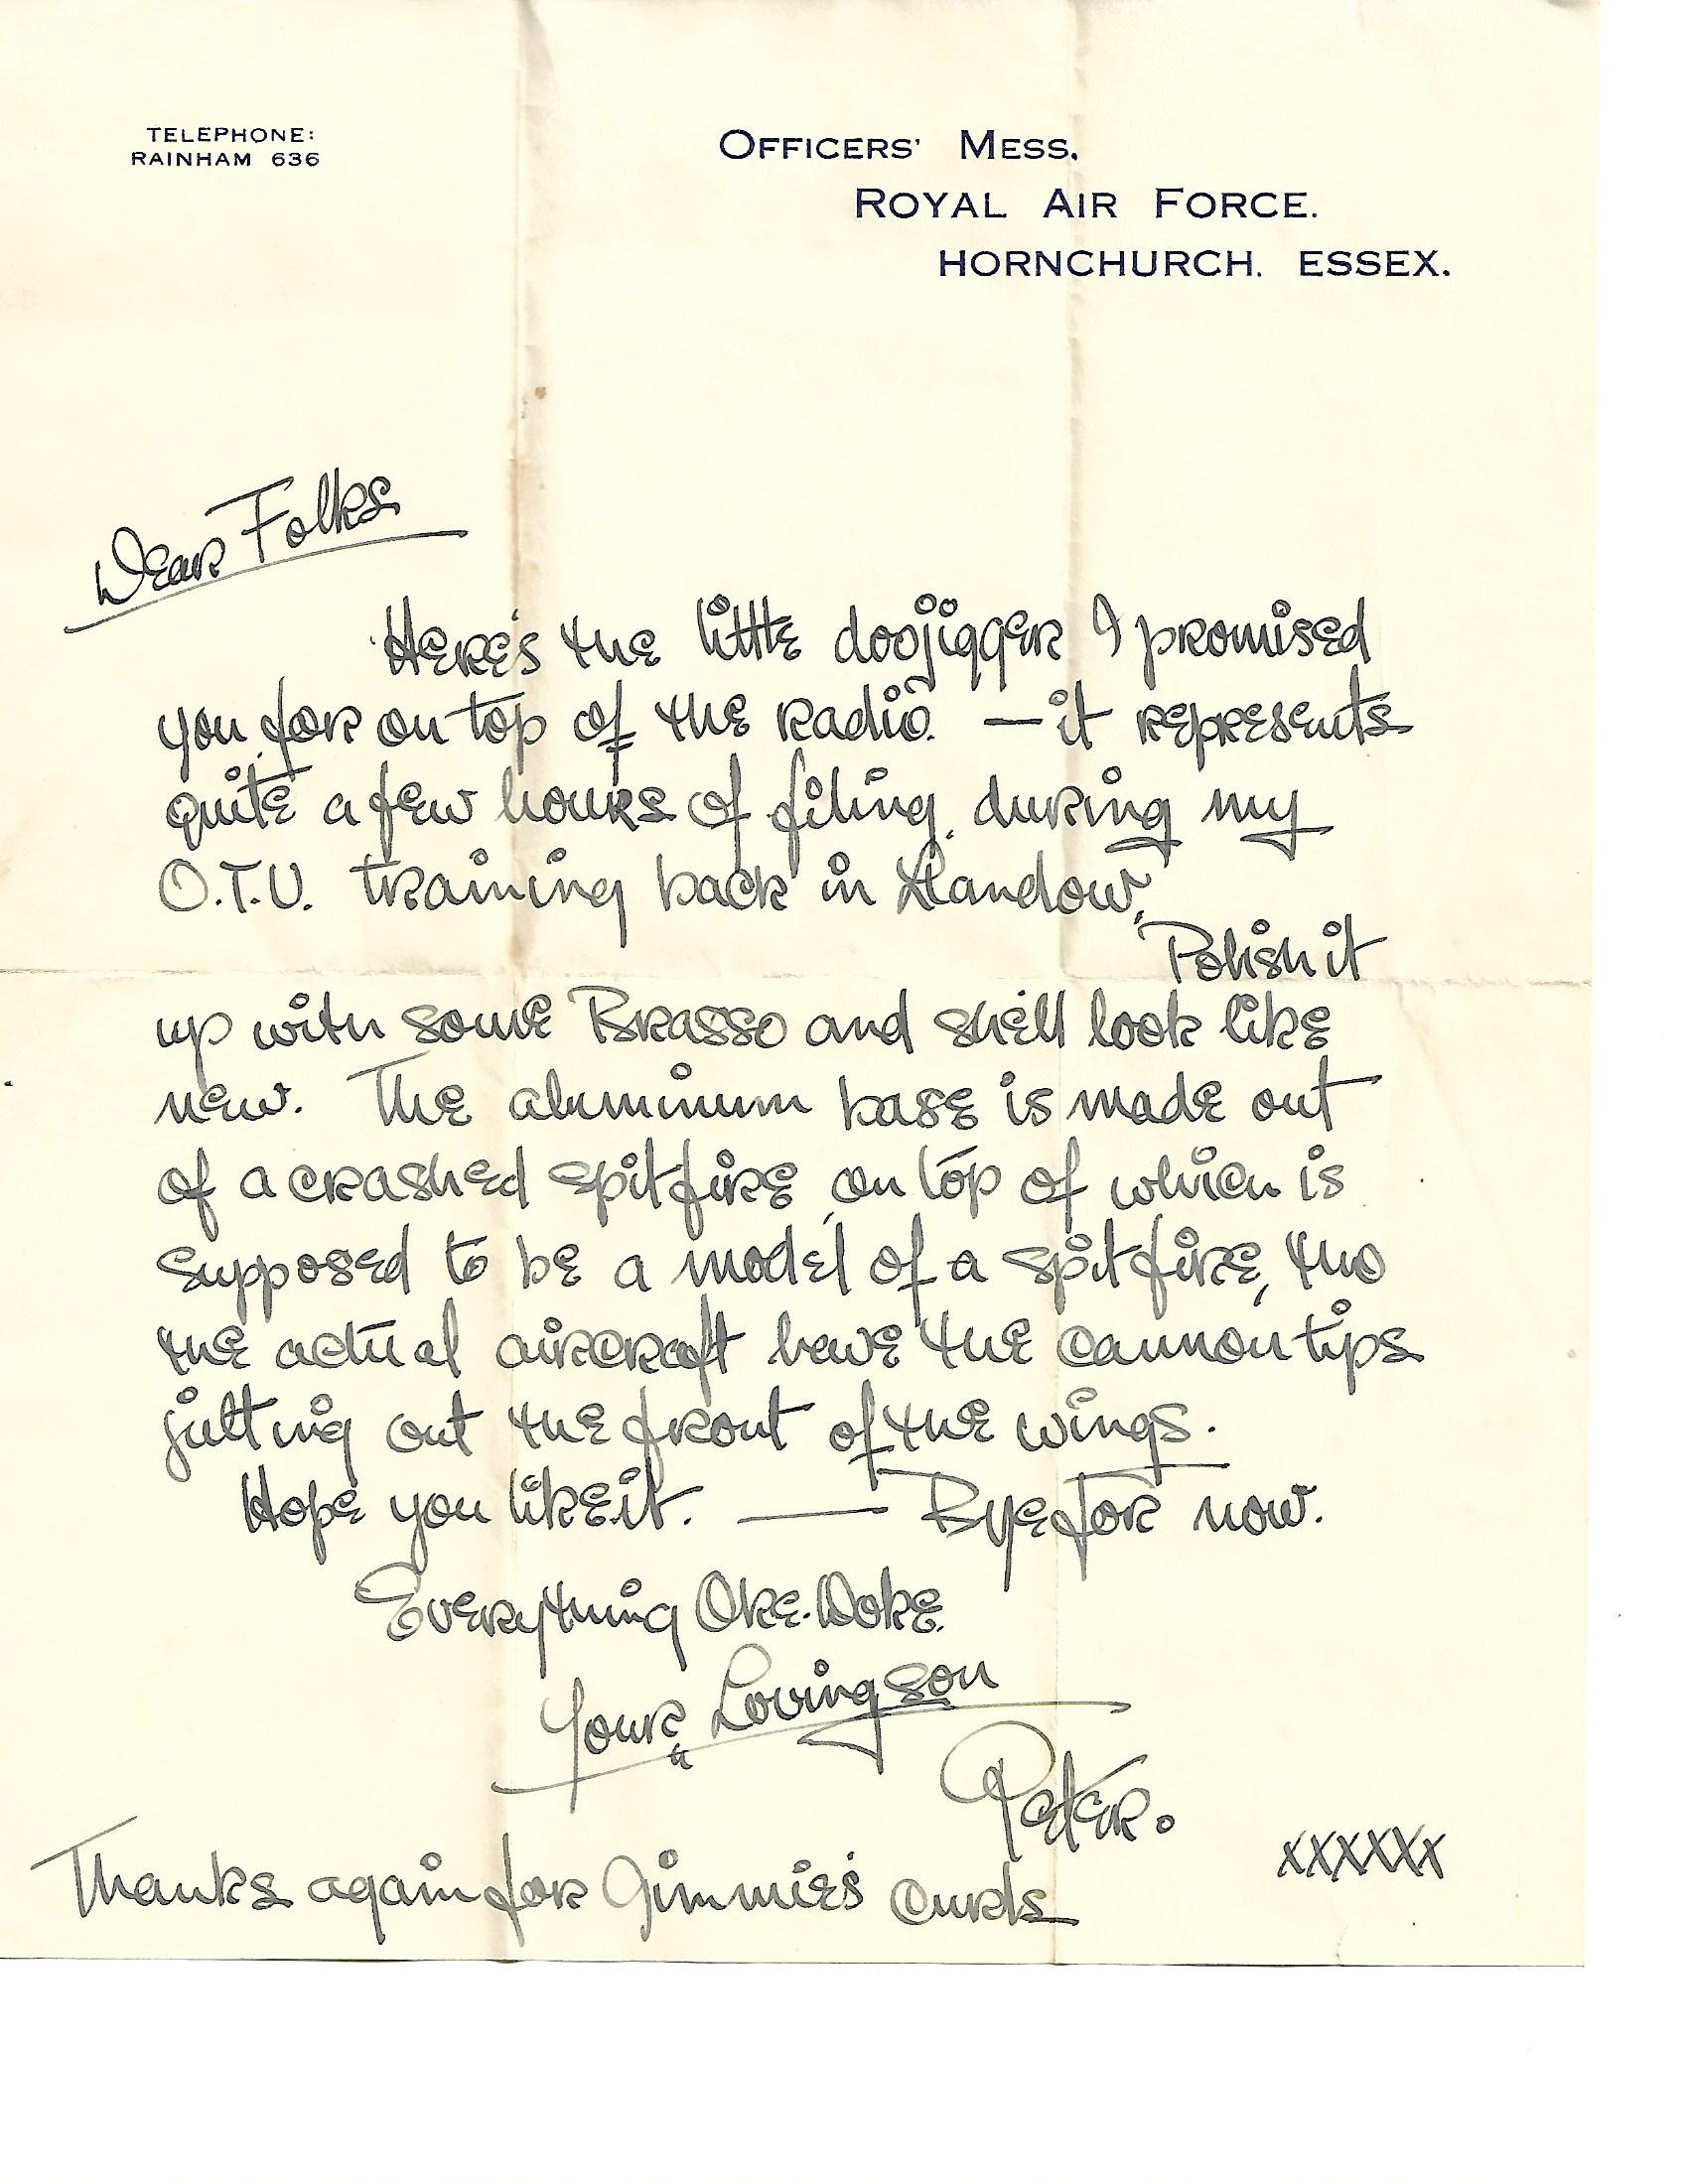 TELEPHONE:
RAINHAM 636
OFFICERS' MESS,
ROYAL AIR FORCE.
HORNCHURCH. ESSEX.
Dear Folks
Here's the little doojigger I promised
you for on top of the radio. — it represents
quite a few hours of filing, during my
O.T.U. training back in Llandow.
Polish it
up with some Brasso and she'll look like
new. The aluminum base is made out
of a crashed spitfire, on top of which is
supposed to be a model of a spitfire, tho
the actual aircraft have the cannon tips
jutting out the front of the wings.
Hope you like it. — Bye for now.
Everything Oke-Doke.
Your Loving son
Peter.
xxxxxx
Thanks again for Jimmie's curls